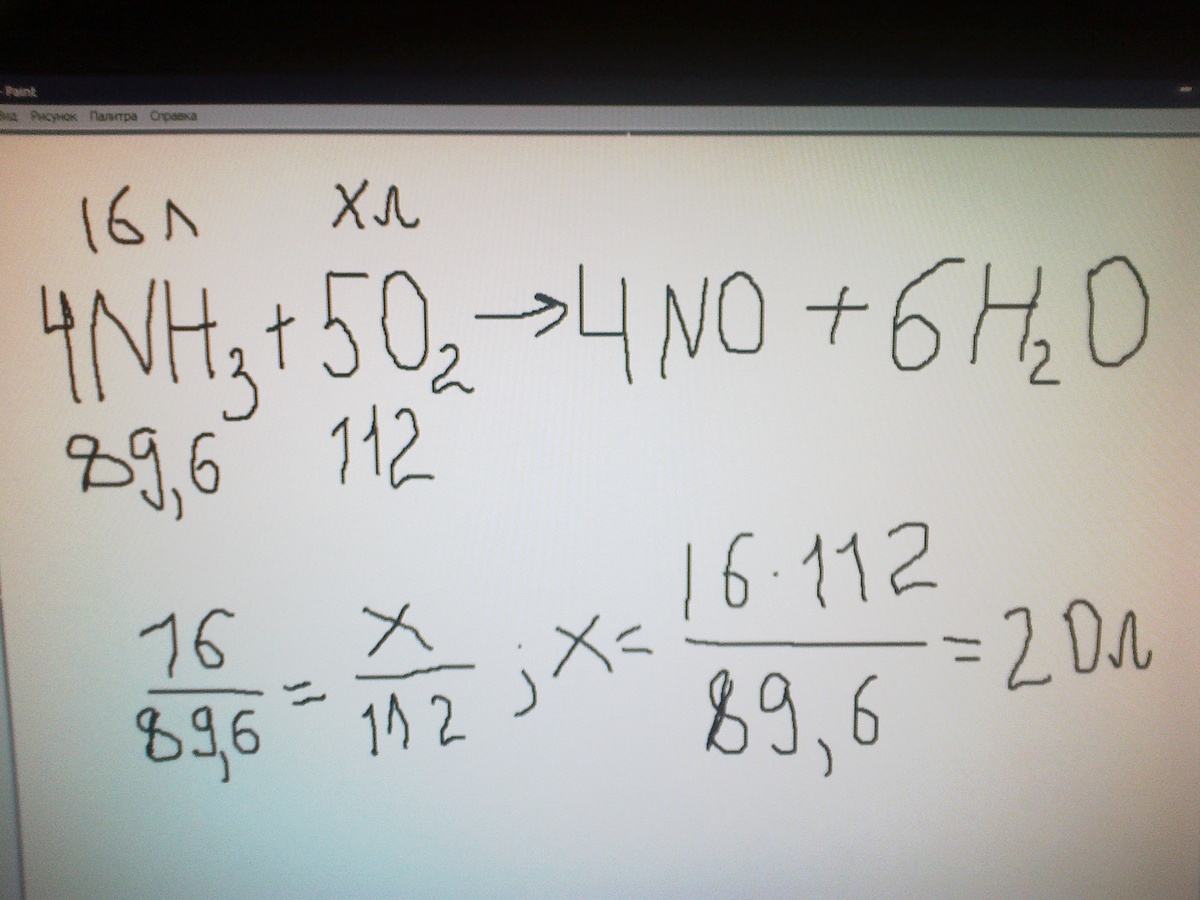 - Paint
Вид Рисунок Палитра Справка
16 л х л
4NH₃ + 5O₂ → 4NO + 6H₂O
89,6 112
16/89,6 = х/112 ; х = 16·112/89,6 = 20 л